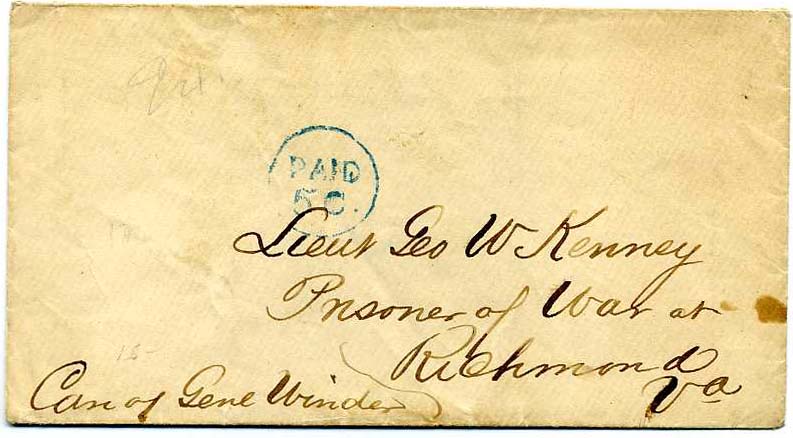 PAID
5 C.
Lieut Geo W Kenney
Prisoner of War at
Richmond
Va
Care of Genl Winder